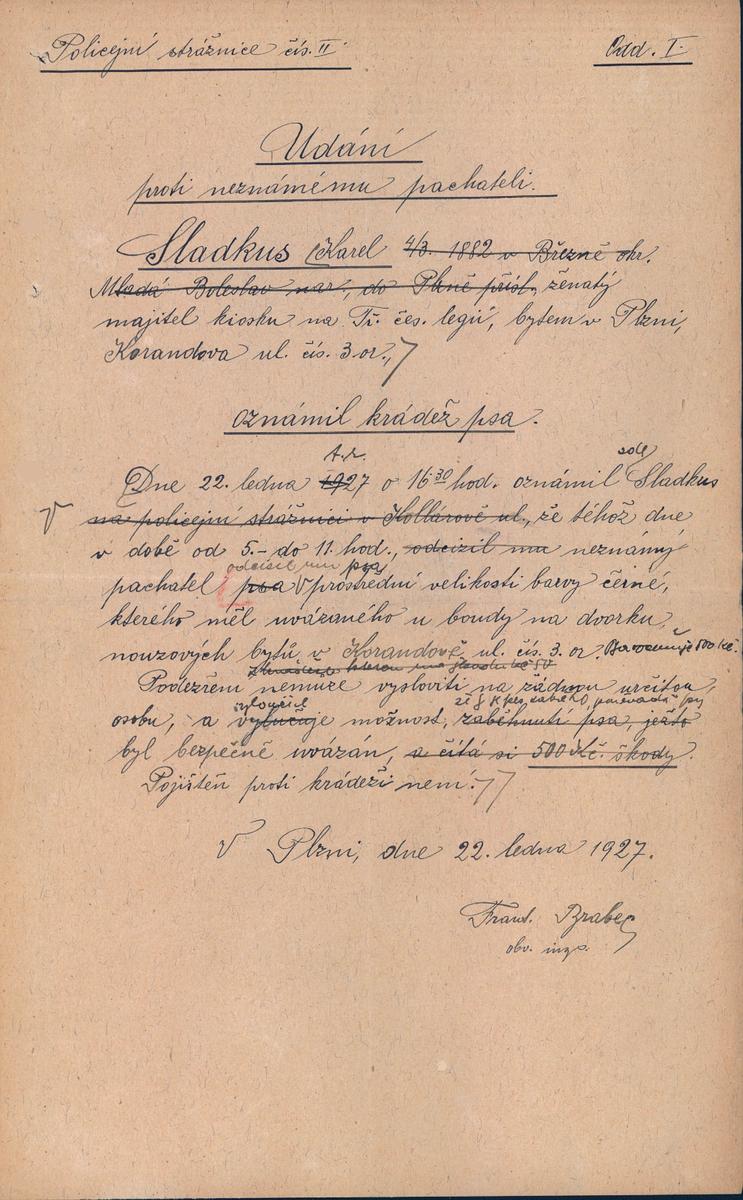 Policejní strážnice čís. II.
Odd. I.
Udání
proti neznámému pachateli.
Sladkus Karel 4/3. 1882 v Březně okr.
Mladá Boleslav nar., do Plzně přísl. ženatý
majitel kiosku na Tř. čes. legií, bytem v Plzni,
Korandova ul. čís. 3 or.,
oznámil krádež psa.
t.r.
sde
Dne 22. ledna 1927 o 16·30 hod. oznámil Sladkus
na policejní strážnici v Kollárově ul., že téhož dne
v době od 5.- do 11. hod., odcizil mu neznámý
odcizil mu psa
pachatel psa prostřední velikosti barvy černé,
kterého měl uvázaného u boudy na dvorku
nouzových bytů v Korandově ul. čís. 3. or. 500 Kč.
Podezření nemůže vysloviti na žádnou určitou
vyloučil
osobu, a vylučuje možnost zaběhnutí psa, ježto
byl bezpečně uvázán, a čítá si 500 Kč. škody.
Pojištěn proti krádeži není.
V Plzni, dne 22. ledna 1927.
Frant. Brabec
obv. insp.